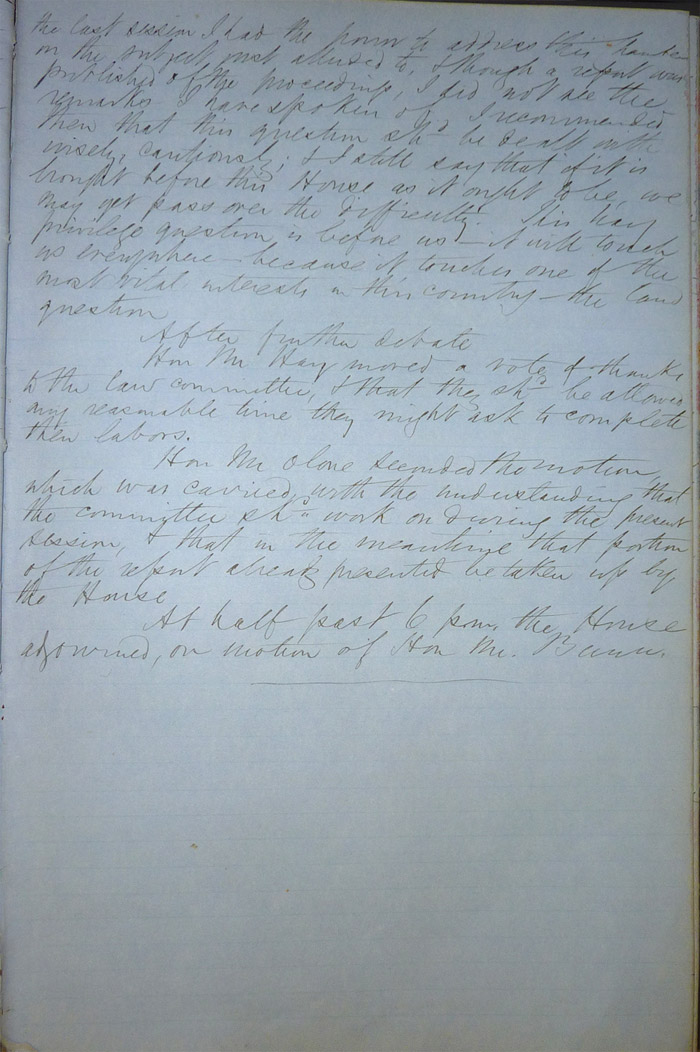 the last session I had the honor to address this
on the subject just alluded to, & though a report was
published of the proceedings, I did not see the
remarks I have spoken of. I recommended
then that this question shd be dealt with
wisely, cautiously; & I still say that if it is
brought before this House as it ought to be, we
may get pass over the difficulty. This
privilege question is before us — it will touch
us everywhere — because it touches one of the
most vital interests in this country — the land
question
After further debate
Hon Mr Hay moved a vote of thanks
to the law committee, & that they shd be allowed
any reasonable time they might ask to complete
their labors.
Hon Mr Olone seconded the motion,
which was carried, with the understanding that
the committee shd work on during the present
session, & that in the meantime that portion
of the report already presented be taken up by
the House
At half past 6 p.m. the House
adjourned, on motion of Hon Mr.